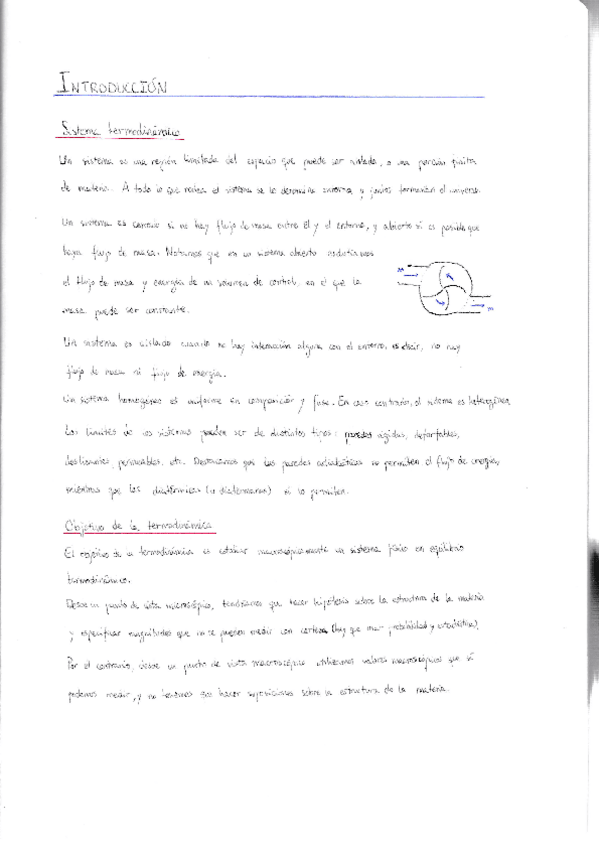 INTRODUCCIÓN
Sistema termodinámico
Un sistema es una región limitada del espacio que puede ser aislada, o una porción finita
de materia. A todo lo que rodea el sistema se le denomina entorno, y juntos forman el universo.
Un sistema es cerrado si no hay flujo de masa entre él y el entorno, y abierto si es posible que
haya flujo de masa. Notamos que en un sistema abierto
el flujo de masa y energía de un volumen de control, en el que la
masa puede ser constante.
m
m
Un sistema es aislado cuando no hay interacción alguna con el entorno, es decir, no hay
flujo de masa ni flujo de energía.
Un sistema homogéneo es uniforme en composición y fase. En caso contrario, el sistema es heterogéneo.
Los límites de los sistemas pueden ser de distintos tipos: paredes rígidas, deformables,
permeables, etc. Destacamos que las paredes adiabáticas no permiten el flujo de energía,
mientras que las diatérmicas (o diatermanas) sí lo permiten.
Objetivo de la termodinámica
El objetivo de la termodinámica es estudiar macroscópicamente un sistema físico en equilibrio
termodinámico.
Desde un punto de vista microscópico, tendríamos que hacer hipótesis sobre la estructura de la materia
y especificar magnitudes que no se pueden medir con certeza (hay que usar probabilidad y estadística).
Por el contrario, desde un punto de vista macroscópico utilizamos valores macroscópicos que sí
podemos medir, y no tenemos que hacer suposiciones sobre la estructura de la materia.